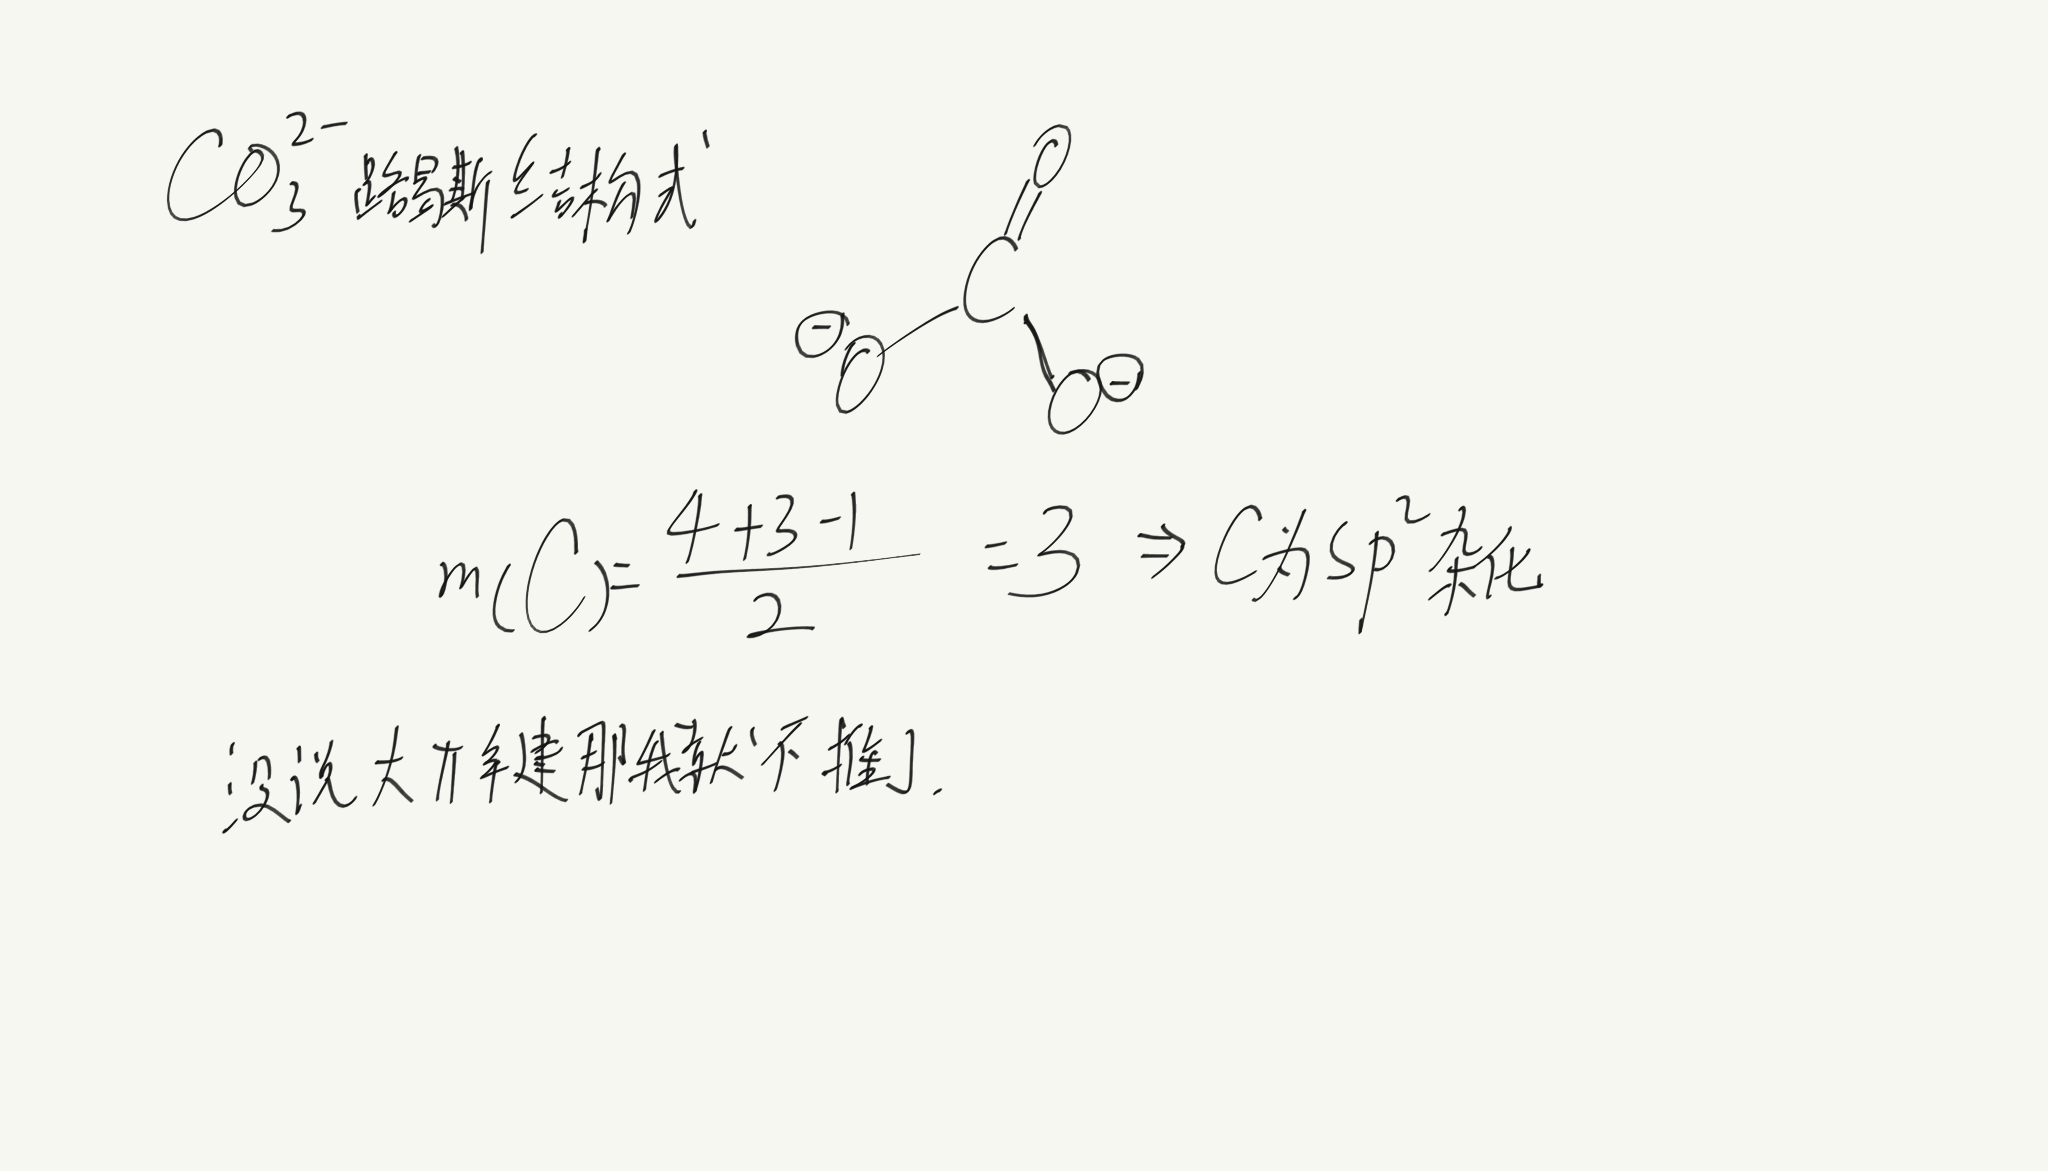 CO₃²⁻ 路易斯结构式
O
C
⊖ O O ⊖
m(C)= (4+3-1)/2 =3 ⇒ C为sp²杂化
没说大π键那我就不推了.